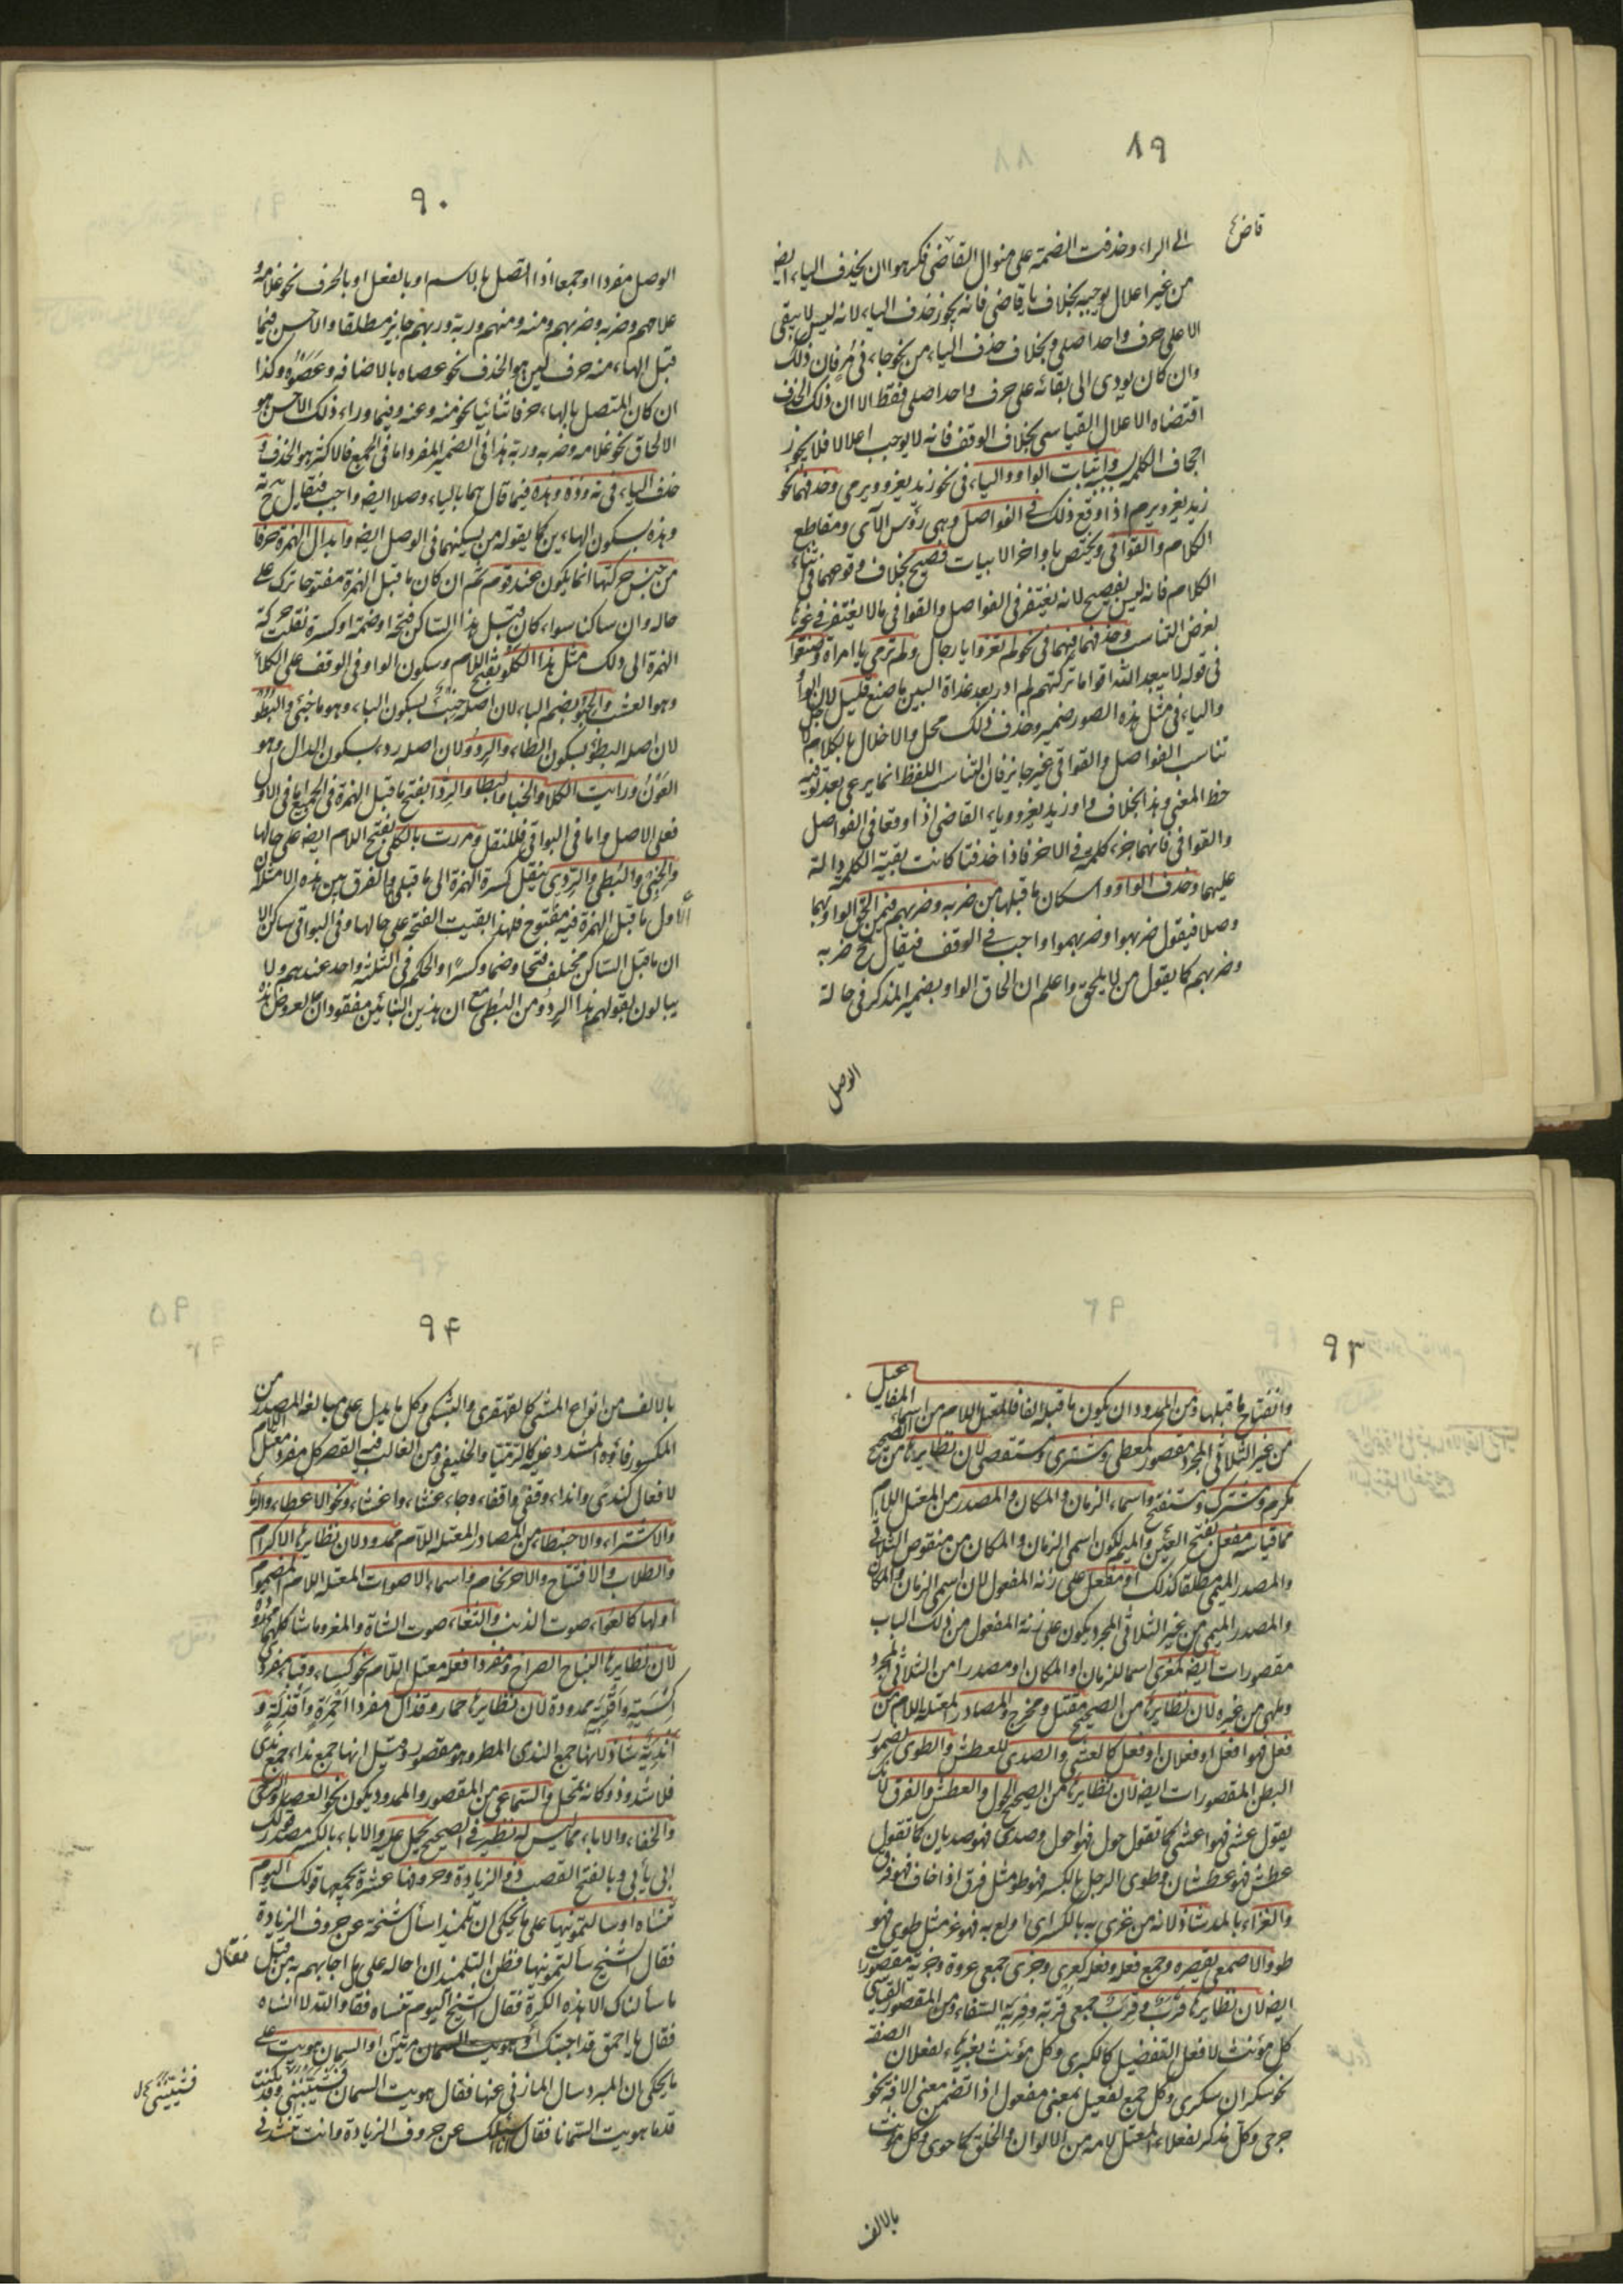 ٨٩
قاض
الى الراء وحذفت الضمة على منوال القاضى فكرهوا ان يحذف الياء ايض
من غير اعلال يوجبه بخلاف يا قاضى فانه يجوز حذف الياء لانه ليس لا يبقى
الا على حرف واحد اصلى وبخلاف حذف الياء من نحو جاءنى مر فان ذلك
وان كان يودى الى بقائه على حرف واحد اصلى فقط الا ان ذلك الحذف
اقتضاه الاعلال القياسى بخلاف الوقف فانه لا يوجب اعلالا فلا يجوز
اجحاف الكلمة بسببه واثبات الواو والياء فى نحو زيد يغزو ويرمى وحذفهما نحو
زيد يغز ويرم اذا وقع ذلك فى الفواصل وهى رؤس الآى ومقاطع
الكلام والقوافى ويختص باواخر الابيات فصيح بخلاف وقوعهما فى اثناء
الكلام فانه ليس بفصيح لانه يغتفر فى الفواصل والقوافى ما لا يغتفر فى غيرها
لغرض التناسب وحذفهما فيهما فى نحو لم تغزوا يا رجال ولم ترمى يا امرأة وصنعوا
فى قوله لا يبعد الله اقواما تركتهم لم ادر بعد غداة البين ما صنع قليل لان الواو
والياء فى مثل هذه الصور ضمير وحذف ذلك مخل والاخلال بالكلام لاجل
تناسب الفواصل والقوافى غير جايز فان التناسب اللفظ انما يرعى بعد توفية
حظ المعنى وهذا بخلاف واو زيد يغزو وياء القاضى اذا وقعا فى الفواصل
والقوافى فانهما جزء كلمة فى الاخر فاذا حذفتا كانت بقية الكلمة دالة
عليهما وحذف الواو واسكان ما قبلها من ضربه وضربهم فيمن الحق الواو بهما
وصلا فيقول ضربهوا وضربهموا واجب فى الوقف فيقال ح ضربه
وضربهم كما يقول من لا يلحق واعلم ان الحاق الواو بضمير المذكر فى حالة
الوصل
٩٠
الوصل مفردا او جمعا اذا اتصل بالاسم او بالفعل او بالحرف نحو غلامه و
غلامهم وضربه وضربهم ومنه ومنهم وربه وربهم جايز مطلقا والاحسن فيما
قبل الهاء منه حرف لين هو الحذف نحو عصاه بالاضافه وعضوه وكذا
ان كان المتصل بالهاء حرفا ثنائيا نحو منه وعنه وفيما وراء ذلك الاحسن هو
الالحاق نحو غلامه وضربه وربه هذا فى الضمير المفرد اما فى الجمع فالاكثر هو الحذف و
حذف الياء فى ته وذه وهذه فيما قال بها بالياء وصلا ايض واجب فيقال ح ته
وهذه بسكون الهاء ين كما يقوله من يسكنهما فى الوصل ايض وابدال الهمزة حرفا
من جنس حركتها انما يكون عند قوم ثم ان كان ما قبل الهمزة مفتوحا ترك على
حاله وان ساكنا سواء كان قبل هذا الساكن فتحة او ضمة او كسرة نقلت حركة
الهمزة الى ذلك مثل هذا الكلو بفتح اللام وسكون الواو فى الوقف على الكلأ
وهو العشب والخبو بضم الباء لان اصله خبء بسكون الباء وهو ما خبئ والبطو
لان اصله البطء بسكون الطاء والردو لان اصله ردء بسكون الدال وهو
العون ورايت الكلا والخبا والبطا والردا بفتح ما قبل الهمزة فى الجميع اما فى الاول
فعلى الاصل واما فى البواقى فللنقل ومررت بالكلى بفتح اللام ايض على حالها
والخبى والبطى والردى بنقل كسرة الهمزة الى ما قبلها والفرق بين هذه الامثلة ان
الاول ما قبل الهمزة فيه مفتوح فلهذا بقيت الفتحة على حالها وفى البواقى ساكن الا
ان ما قبل الساكن مختلف فتحا وضما وكسرا والحكم فى الثلثة واحد عندهم ولا
يبالون بقولهم هذا الردو ومن البطى مع ان هذين البنائين مفقودان لعروض هذه
٩٣
وانفتاح ما قبلها ومن الممدود ان يكون ما قبله الفا فالمعتل اللام من اسماء المفاعيل
من غير الثلاثى المجرد مقصور كمعطى ومشترى ومستقصى لان نظايرها من الصحيح
مكرم ومشترك ومستفتح واسماء الزمان والمكان والمصدر من المعتل اللام
مما قياسه مفعل بفتح العين والميم لكون اسمى الزمان والمكان من منقوص الثلاثى
والمصدر الميمى مطلقا كذلك او مفعل على زنة المفعول لان اسمى الزمان والمكان
والمصدر الميمى من غير الثلاثى المجرد يكون على زنة المفعول من ذلك الباب
مقصورات ايض كمغزى اسما للزمان او المكان او مصدرا من الثلاثى المجرد
وملهى من غيره لان نظايرها من الصحيح مقتل ومخرج والمصادر لمعتلة اللام من
فعل فهو افعل او فعلان او فعل كالعشى والصدى للعطش والطوى لضمور
البطن المقصورات ايض لان نظايرها من الصحيح الحول والعطش والفرق لانك
يقول عشى فهو اعشى كما تقول حول فهو احول وصدى فهو صديان كما تقول
عطش فهو عطشان وطوى الرجل بالكسر فهو طو مثل فرق اذا خاف فهو فرق
والغراء بالمد شاذ لانه من غرى به بالكسر اى اولع به فهو غر مثل طوى فهو
طو والاصمعى يقصره وجمع فعلة وفعلة كعرى وجزى جمعى عروة وجزية مقصور
ايض لان نظايرها قرب وقرب جمعى قربة وقربة السقاء ومن المقصور القياسى
كل مؤنث لافعل التفضيل كالكبرى وكل مؤنث بغير هاء لفعلان الصفة
نحو سكران سكرى وكل جمع لفعيل بمعنى مفعول اذا تضمن معنى الافة نحو
جرحى وكل مذكر لفعلاء المعتل لامه من الالوان والخلق كاحوى وكل مؤنث
بالالف
٩۴
بالالف من انواع المشى كالقهقرى والبشكى وكل ما يدل على مبالغة المصدر من
المكسور فاؤه المشدد عينه كالرميا والخليفى ومن الغالب فيه القصر كل مفرد معتل اللام
لافعال كندى وانداء وقفى واقفاء وجاء غشاء واغشاء ونحو الاعطاء والرماء
والاشتراء والاحبنطاء من المصادر المعتله اللام ممدود لان نظايرها الاكرام
والطلاب والافتتاح والاحرنجام واسماء الاصوات المعتلة اللام المضموم
اولها كالعواء صوت الذئب والثغاء صوت الشاة والمغر وما شاكلهما ممدودة
لان نظايرها النباح الصراخ ومفرد افعلة معتل اللام نحو كساء وقباء مفردى
اكسية واقبية ممدودة لان نظايرها حمار وقذال مفردا احمرة واقذلة و
اندية شاذ لانها جمع الندى المطر وهو مقصور وقيل انها جمع نداء جمع ندى
فلا شذوذ وكانه تمحل والسماعى من المقصور والممدود يكون نحو العصا والرحى
والخفاء والاباء مما ليس له نظير فى الصحيح يحمل عليه والاباء بالكسر مصدر قولك
ابى يأبى وبالفتح القصب ذو الزيادة وحروفها عشرة يجمعها قولك اليوم
تنساه او سالتمونيها على ما يحكى ان تلميذا سأل شيخه عن حروف الزيادة
فقال الشيخ سألتمونيها فظن التلميذ ان احاله على ما اجابهم به من قبل فقال
ما سألناك الا هذه الكرة فقال الشيخ اليوم تنساه فقا والله لا انساه
فقال يا احمق قد اجبتك مرتين او السمان هويت على
ما يحكى ان المبرد سال المازنى عنها فقال هويت السمان فشيبننى وقد كنت
قدما هويت السمانا فقال اسئلك عن حروف الزيادة وانت تنشدنى